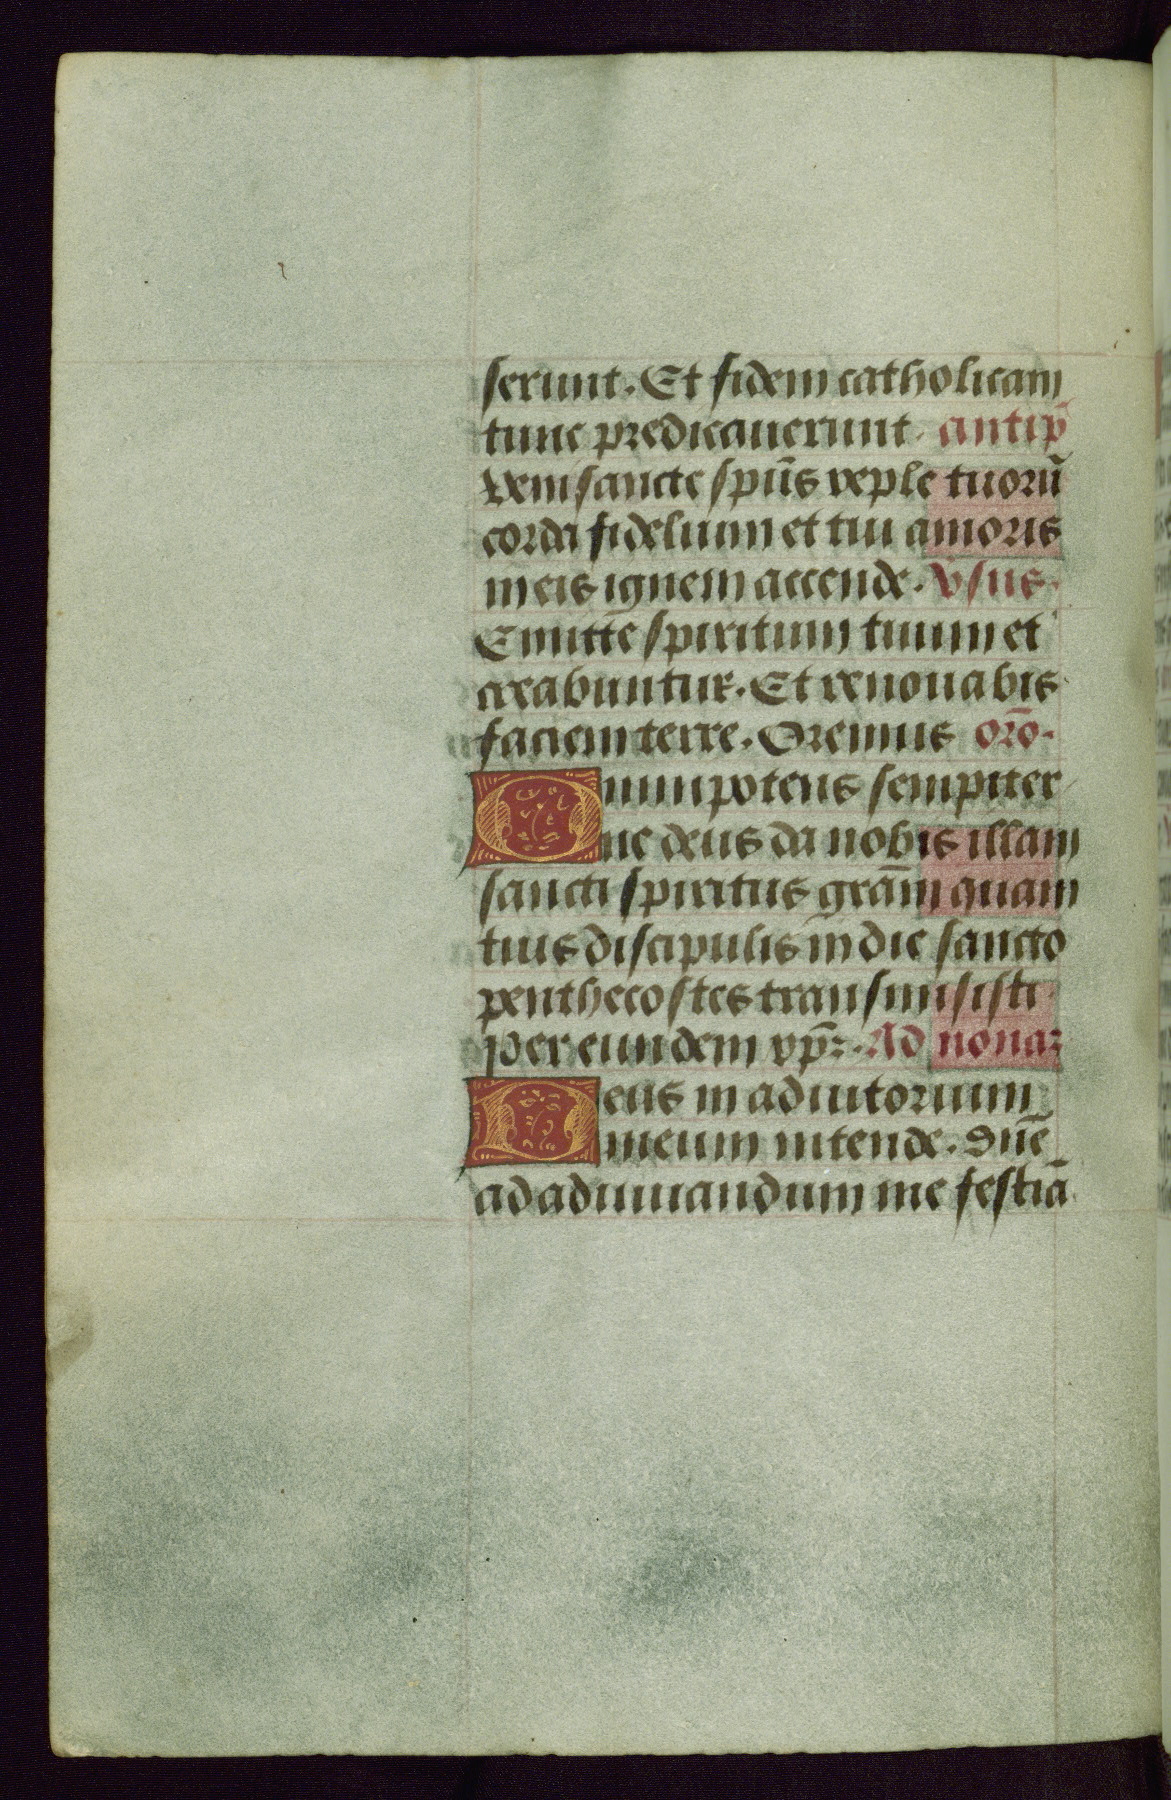 serunt. Et fidem catholicam
tunc predicauerunt. antip̄
Veni sancte sp̄ūs reple tuorū
corda fidelium et tui amoris
in eis ignem accende. v̄sus.
Emitte spiritum tuum et
creabuntur. Et renouabis
faciem terre. Oremus or̄o.
Omnipotens sempiter
ne deus da nobis illam
sancti spiritus grām quam
tuis discipulis in die sancto
penthecostes transmisisti
per eundem xp̄ꝫ. Ad nonaꝫ
Deus in adiutorium
meum intende. Dn̄e
ad adiuuandum me festiā